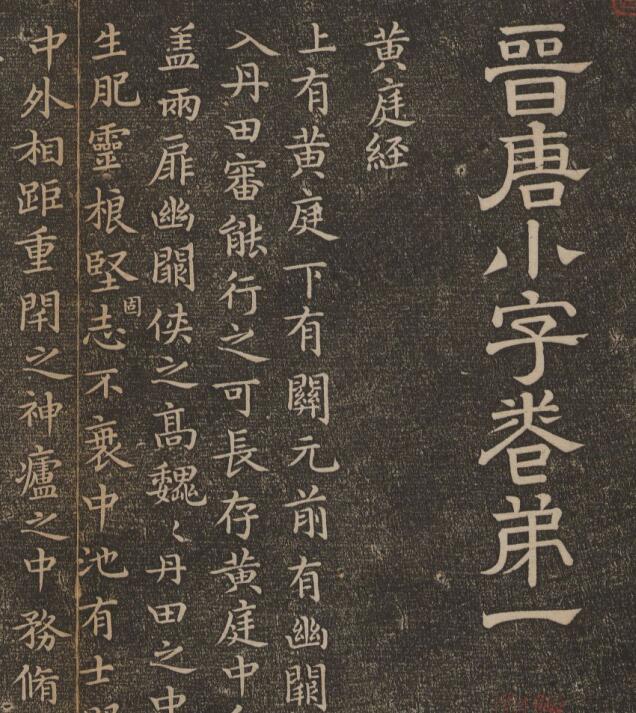 晉唐小字卷弟一
黄庭経
上有黄庭下有關元前有幽闕
入丹田審能行之可長存黄庭中
盖兩扉幽闕俠之髙魏〻丹田之中
生肥靈根堅固志不衰中池有士
中外相距重閇之神廬之中務脩